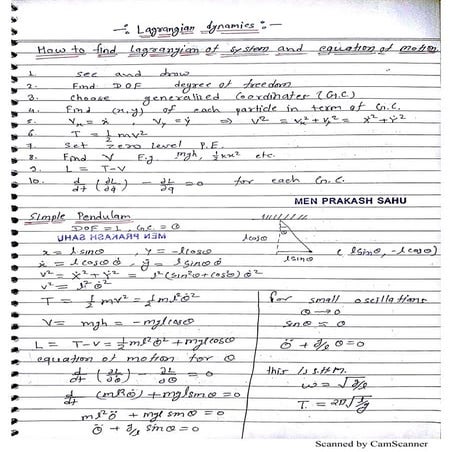 -: Lagrangian dynamics :-
How to find lagrangian of system and equation of motion
1. see and draw
2. Find DOF degree of freedom
3. choose generalised coordinates (G.C)
4. Find (x,y) of each particle in term of G.C.
5. Vx = ẋ , Vy = ẏ ⇒ V² = Vx² + Vy² = ẋ² + ẏ²
6. T = ½ mv²
7. Set zero level P.E.
8. Find V E.g. mgh, ½kx² etc.
9. L = T-V
10. d/dt (∂L/∂q̇) - ∂L/∂q = 0 for each G.C.
MEN PRAKASH SAHU
Simple Pendulam
DOF = 1, G.C. = θ
MEN PRAKASH SAHU
x = l sinθ , y = -l cosθ
ẋ = l cosθ θ̇ , ẏ = l sinθ θ̇
v² = ẋ² + ẏ² = l² (sin²θ + cos²θ) θ̇²
v² = l² θ̇²
T = ½ mv² = ½ ml² θ̇²
V = mgh = -mgl cosθ
L = T-V = ½ ml² θ̇² + mgl cosθ
equation of motion for θ
d/dt (∂L/∂θ̇) - ∂L/∂θ = 0
d/dt (ml² θ̇) + mgl sinθ = 0
ml² θ̈ + mgl sinθ = 0
θ̈ + g/l sinθ = 0
θ
l cosθ
l sinθ
(l sinθ, -l cosθ)
For small oscillations
θ → 0
sinθ = θ
θ̈ + g/l θ = 0
this is S.H.M.
ω = √g/l
T = 2π √l/g
Scanned by CamScanner